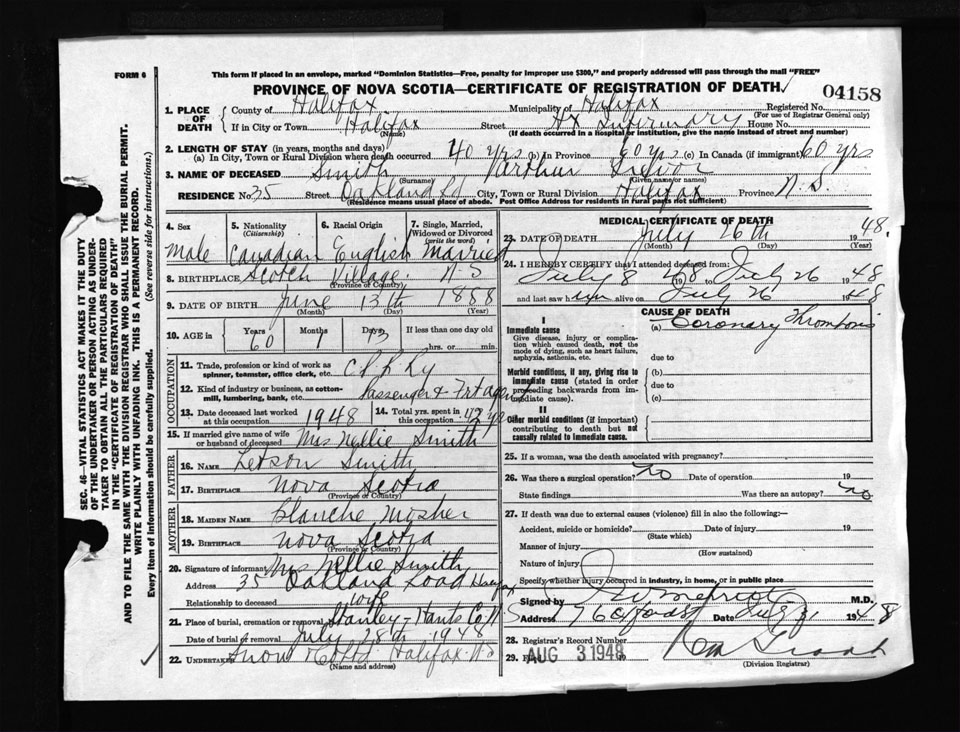 FORM 6
This form if placed in an envelope, marked "Dominion Statistics—Free, penalty for improper use $300," and properly addressed will pass through the mail "FREE"
PROVINCE OF NOVA SCOTIA—CERTIFICATE OF REGISTRATION OF DEATH
04158
1. PLACE OF DEATH
County of Halifax Municipality of Halifax Registered No.
(For use of Registrar General only)
If in City or Town Halifax Street Hx Infirmary House No.
(Name) (If death occurred in a hospital or institution, give the name instead of street and number)
2. LENGTH OF STAY (in years, months and days)
(a) In City, Town or Rural Division where death occurred 40 yrs (b) In Province 60 yrs (c) In Canada (if immigrant) 60 yrs
3. NAME OF DECEASED Smith Arthur
(Surname) (Given name or names)
RESIDENCE No. 35 Street Oakland Rd City, Town or Rural Division Halifax Province N.S.
(Residence means usual place of abode. Post Office Address for residents in rural parts not sufficient)
4. Sex 5. Nationality (Citizenship) 6. Racial Origin 7. Single, Married, Widowed or Divorced (write the word)
Male Canadian English Married
8. BIRTHPLACE Scotch Village N.S
(Province or Country)
9. DATE OF BIRTH June 13th 1888
(Month) (Day) (Year)
10. AGE in Years Months Days If less than one day old
60 1 13 hrs. or min.
OCCUPATION
11. Trade, profession or kind of work as spinner, teamster, office clerk, etc. C P Ry
12. Kind of industry or business, as cotton-mill, lumbering, bank, etc. Passenger & Frt agen
13. Date deceased last worked at this occupation 1948 14. Total yrs. spent in this occupation 42 yr
15. If married give name of wife or husband of deceased Mrs Nellie Smith
FATHER
16. NAME Letson Smith
17. BIRTHPLACE Nova Scotia
(Province or Country)
MOTHER
18. MAIDEN NAME Blanche Mosher
19. BIRTHPLACE Nova Scotia
(Province or Country)
20. Signature of informant Mrs Nellie Smith
Address 35 Oakland Road Halifax
Relationship to deceased wife
21. Place of burial, cremation or removal Stanley - Hants Co N
Date of burial or removal July 28th 1948
22. Undertaker Snow & Co Ltd Halifax N.S
(Name and address)
MEDICAL CERTIFICATE OF DEATH
23. DATE OF DEATH July 26th 1948
(Month) (Day) (Year)
24. I HEREBY CERTIFY that I attended deceased from:
July 8 1948 to July 26 1948
and last saw him alive on July 26 1948
CAUSE OF DEATH
I
Immediate cause
Give disease, injury or complication which caused death, not the mode of dying, such as heart failure, asphyxia, asthenia, etc.
(a) Coronary Thrombosis
due to
Morbid conditions, if any, giving rise to immediate cause (stated in order proceeding backwards from immediate cause).
(b)
due to
(c)
II
Other morbid conditions (if important) contributing to death but not causally related to immediate cause.
25. If a woman, was the death associated with pregnancy?
26. Was there a surgical operation? no Date of operation 19
State findings Was there an autopsy? no
27. If death was due to external causes (violence) fill in also the following:—
Accident, suicide or homicide? Date of injury 19
(State which)
Manner of injury
(How sustained)
Nature of injury
Specify whether injury occurred in industry, in home, or in public place
Signed by M.D.
Address Date July 31 1948
28. Registrar's Record Number
29. Filed AUG 3 1948
(Division Registrar)
SEC. 46—VITAL STATISTICS ACT MAKES IT THE DUTY
OF THE UNDERTAKER OR PERSON ACTING AS UNDER-
TAKER TO OBTAIN ALL THE PARTICULARS REQUIRED
IN THE "CERTIFICATE OF REGISTRATION OF DEATH"
AND TO FILE THE SAME WITH THE DIVISION REGISTRAR WHO SHALL ISSUE THE BURIAL PERMIT.
WRITE PLAINLY WITH UNFADING INK. THIS IS A PERMANENT RECORD.
Every item of information should be carefully supplied. (See reverse side for instructions.)